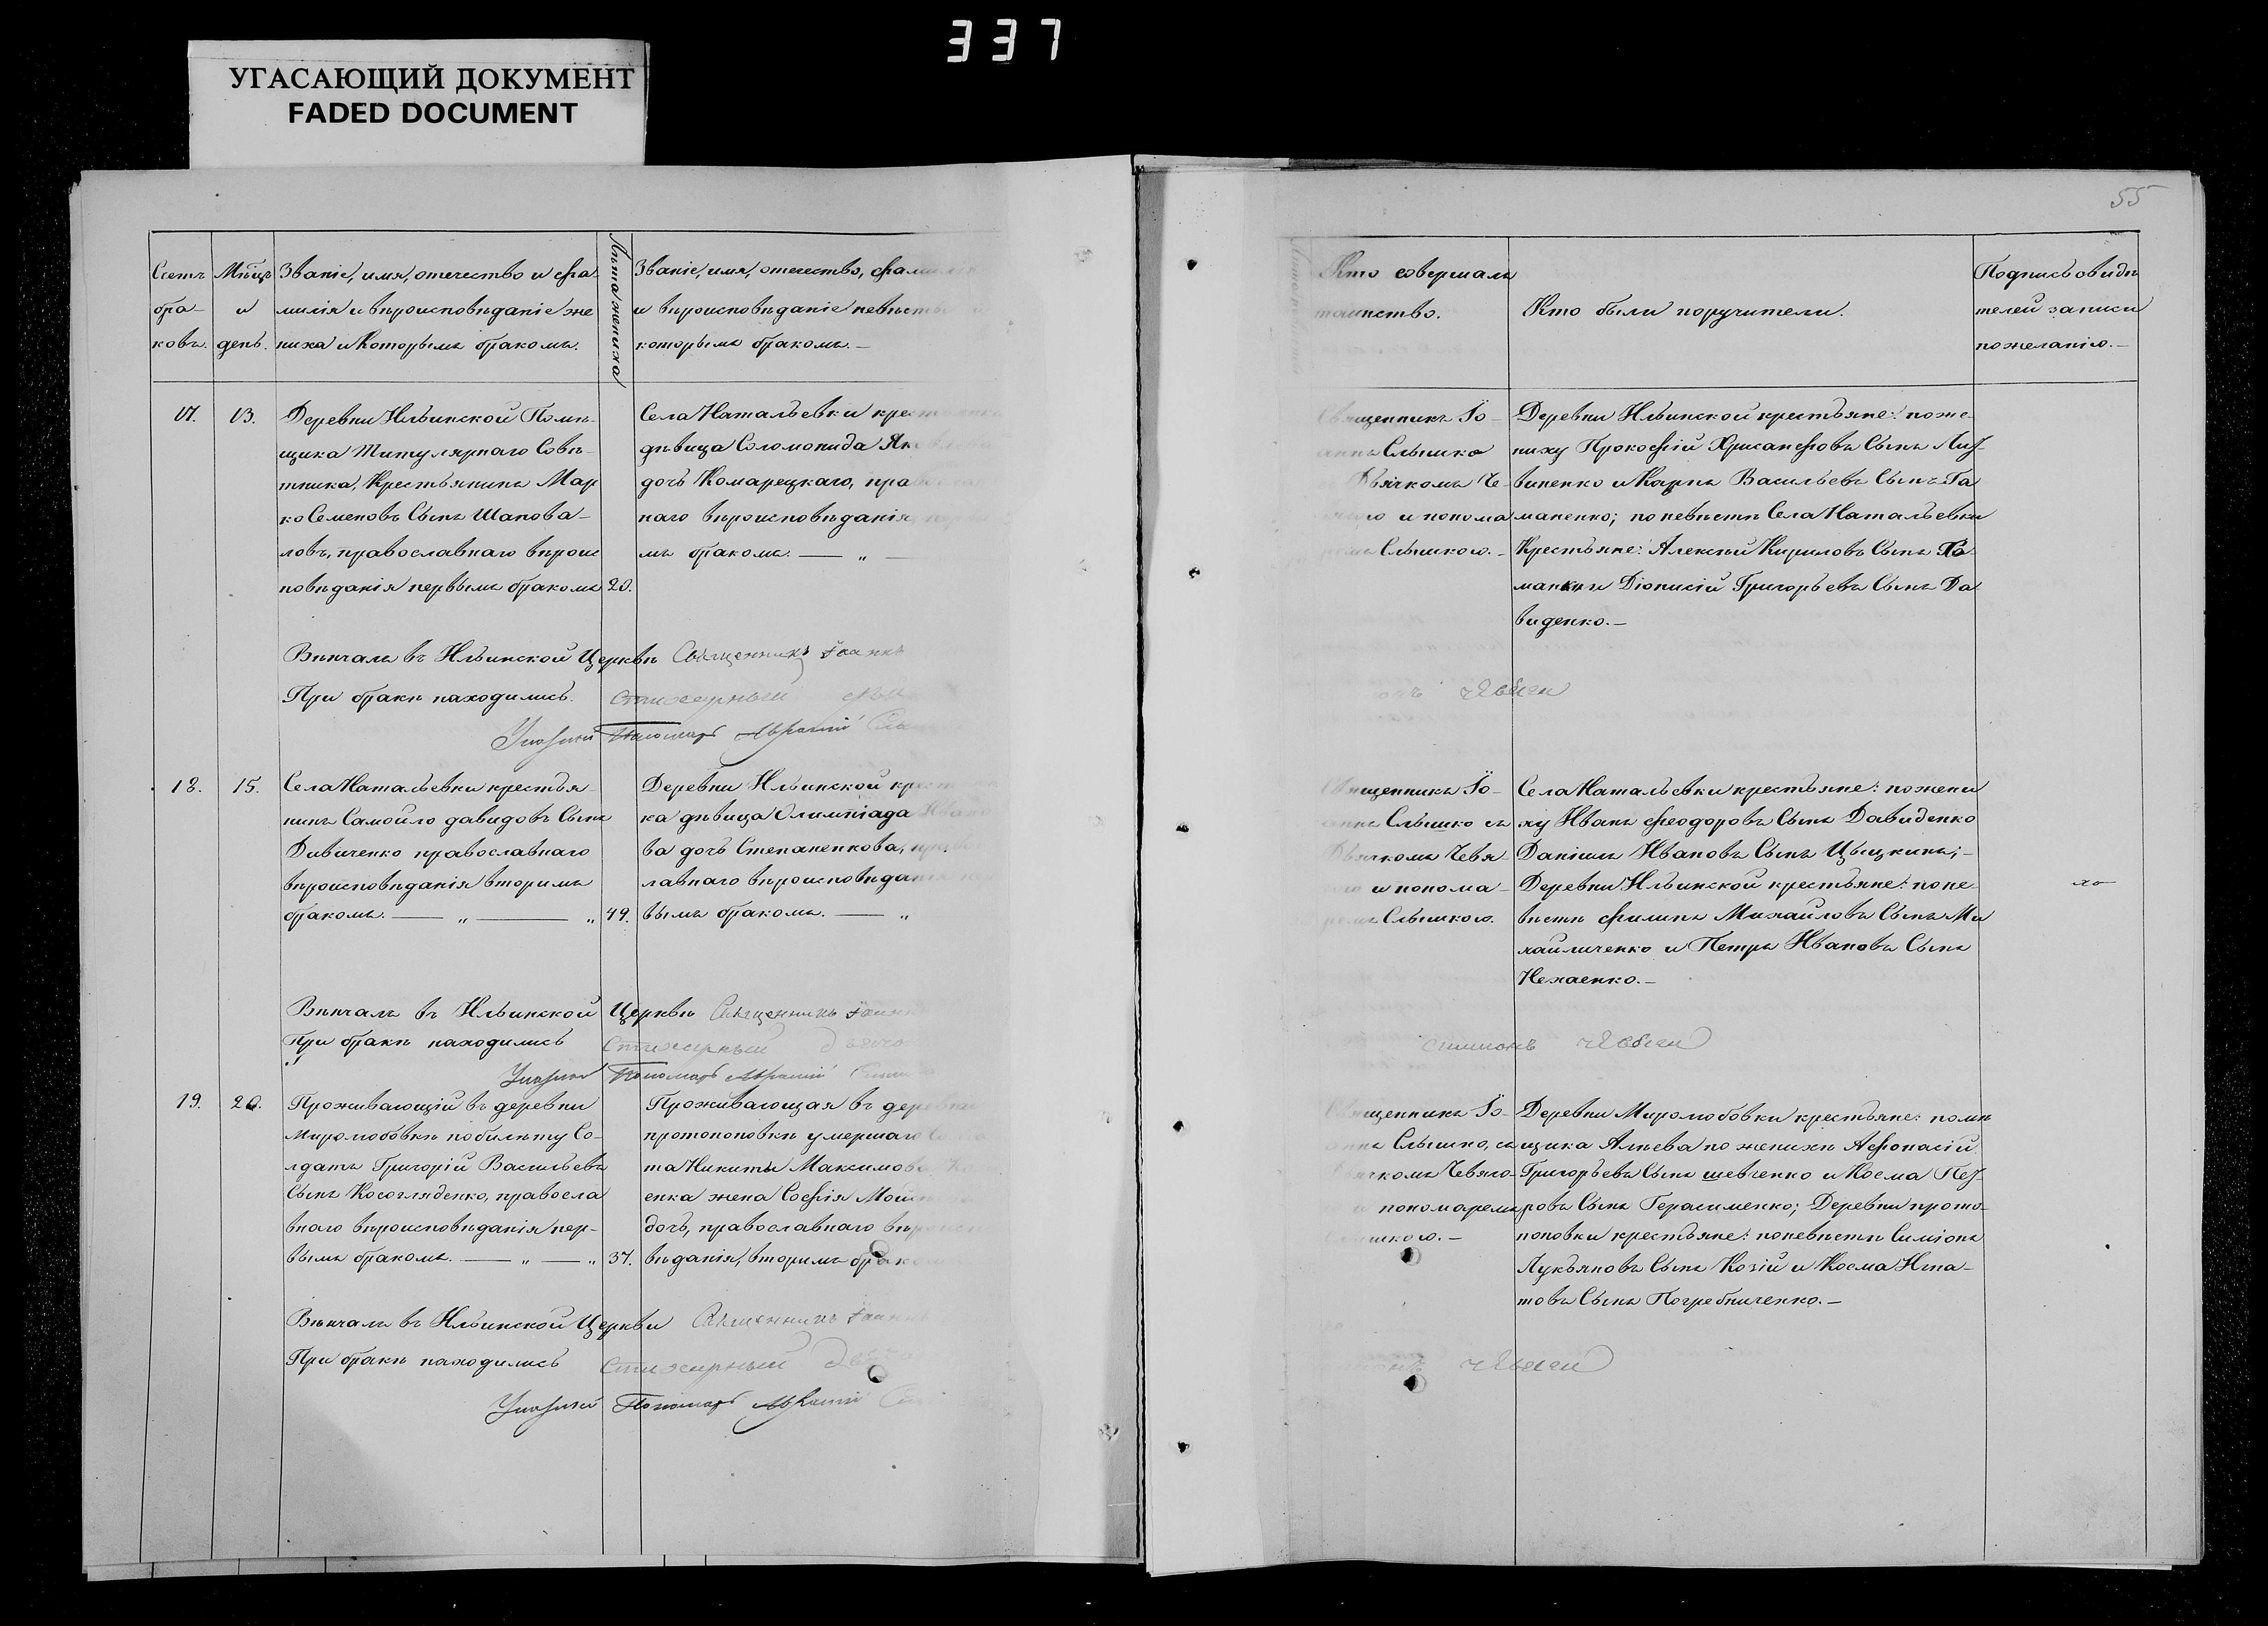 337
УГАСАЮЩИЙ ДОКУМЕНТ
FADED DOCUMENT
55
Счетъ бра-ковъ.
Мѣцъ и день.
Званіе, имя, отечество и фа
милія и вѣроисповѣданіе же
ниха и Которымъ бракомъ.
Лѣта жениха
Званіе, имя, отечество,
и вѣроисповѣданіе невѣсты
которымъ бракомъ.—
Кто совершалъ
таинство.
Кто были поручители.
Подпись свидѣ
телей записи
по желанію.—
17.
13.
Деревни Ильинской Помѣ-
щика Титулярнаго Совѣ-
тника, Крестьянинъ Мар
ко Семеновъ Сынъ Шапова-
ловъ, православнаго вѣроис
повѣданія первымъ бракомъ
20.
Села Натальевки
дѣвица Соломонида
дочь Комарецкаго,
наго вѣроисповѣданія,
мъ бракомъ. — „ —
Священникъ Іо-
Слышко
Дьячкомъ Че-
и понома
Слышкою.-
Деревни Ильинской крестьяне: по же-
ниху Прокофій Хрисанфовъ Сынъ Лит-
виненко и Карпъ Васильевъ Сынъ Га
маненко; по невѣстѣ Села Натальевки
Крестьяне: Алексѣй Кириловъ Сынъ
и Діонисій Григорьевъ Сынъ Да
виденко.—
Вѣнчалъ въ Ильинской Церквѣ Священникъ Іоаннъ
При бракѣ находились Стихарный
Пономарь
18.
15.
Села Натальевки крестья-
нинъ Самойло давидовъ Сынъ
Дивиченко православнаго
вѣроисповѣданія вторымъ
бракомъ. — „ — „
49.
Деревни Ильинской
ка дѣвица Олимпіада
ва дочь Степаненкова,
лавнаго вѣроисповѣданія
вымъ бракомъ. — „
Священникъ Іо-
Слышко съ
Дьячкомъ Чевя-
и понома-
Слышкою.
Села Натальевки крестьяне: по жени
ху Иванъ Феодоровъ Сынъ Давиденко
Даніилъ Ивановъ Сынъ Цыцкинъ;-
Деревни Ильинской крестьяне: по не-
вѣстѣ Филипъ Михайловъ Сынъ Ми
хайличенко и Петръ Ивановъ Сынъ
Нехаенко.—
Вѣнчалъ въ Ильинской Церквѣ Священникъ Іоаннъ
При бракѣ находились Стихарный
Пономарь
19.
20.
Проживающій въ деревни
Миролюбовкѣ по билѣту Со-
лдатъ Григорій Васильевъ
Сынъ Косогляденко, правосла
внаго вѣроисповѣданія пер-
вымъ бракомъ. — „ — „
37.
Проживающая въ
протопоповкѣ умершаго
та Никиты Максимова
енка жена Софія
дочь, православнаго
вѣданія, вторымъ
Священникъ Іо-
Слышко, съ
Дьячкомъ Чевяго-
пономаремъ
Деревни Миролюбовки крестьяне: помѣ
щика Алѣева по женихѣ Афонасій
Григорьевъ Сынъ шевченко и Косма Пет-
ровъ Сынъ Герасименко; Деревни прото-
поповки крестьяне: по невѣстѣ Симіонъ
Лукьяновъ Сынъ Козій и Косма Ипа-
товъ Сынъ Погребниченко.—
Вѣнчалъ въ Ильинской Церкви Священникъ Іоаннъ
При бракѣ находились Стихарный
Пономарь